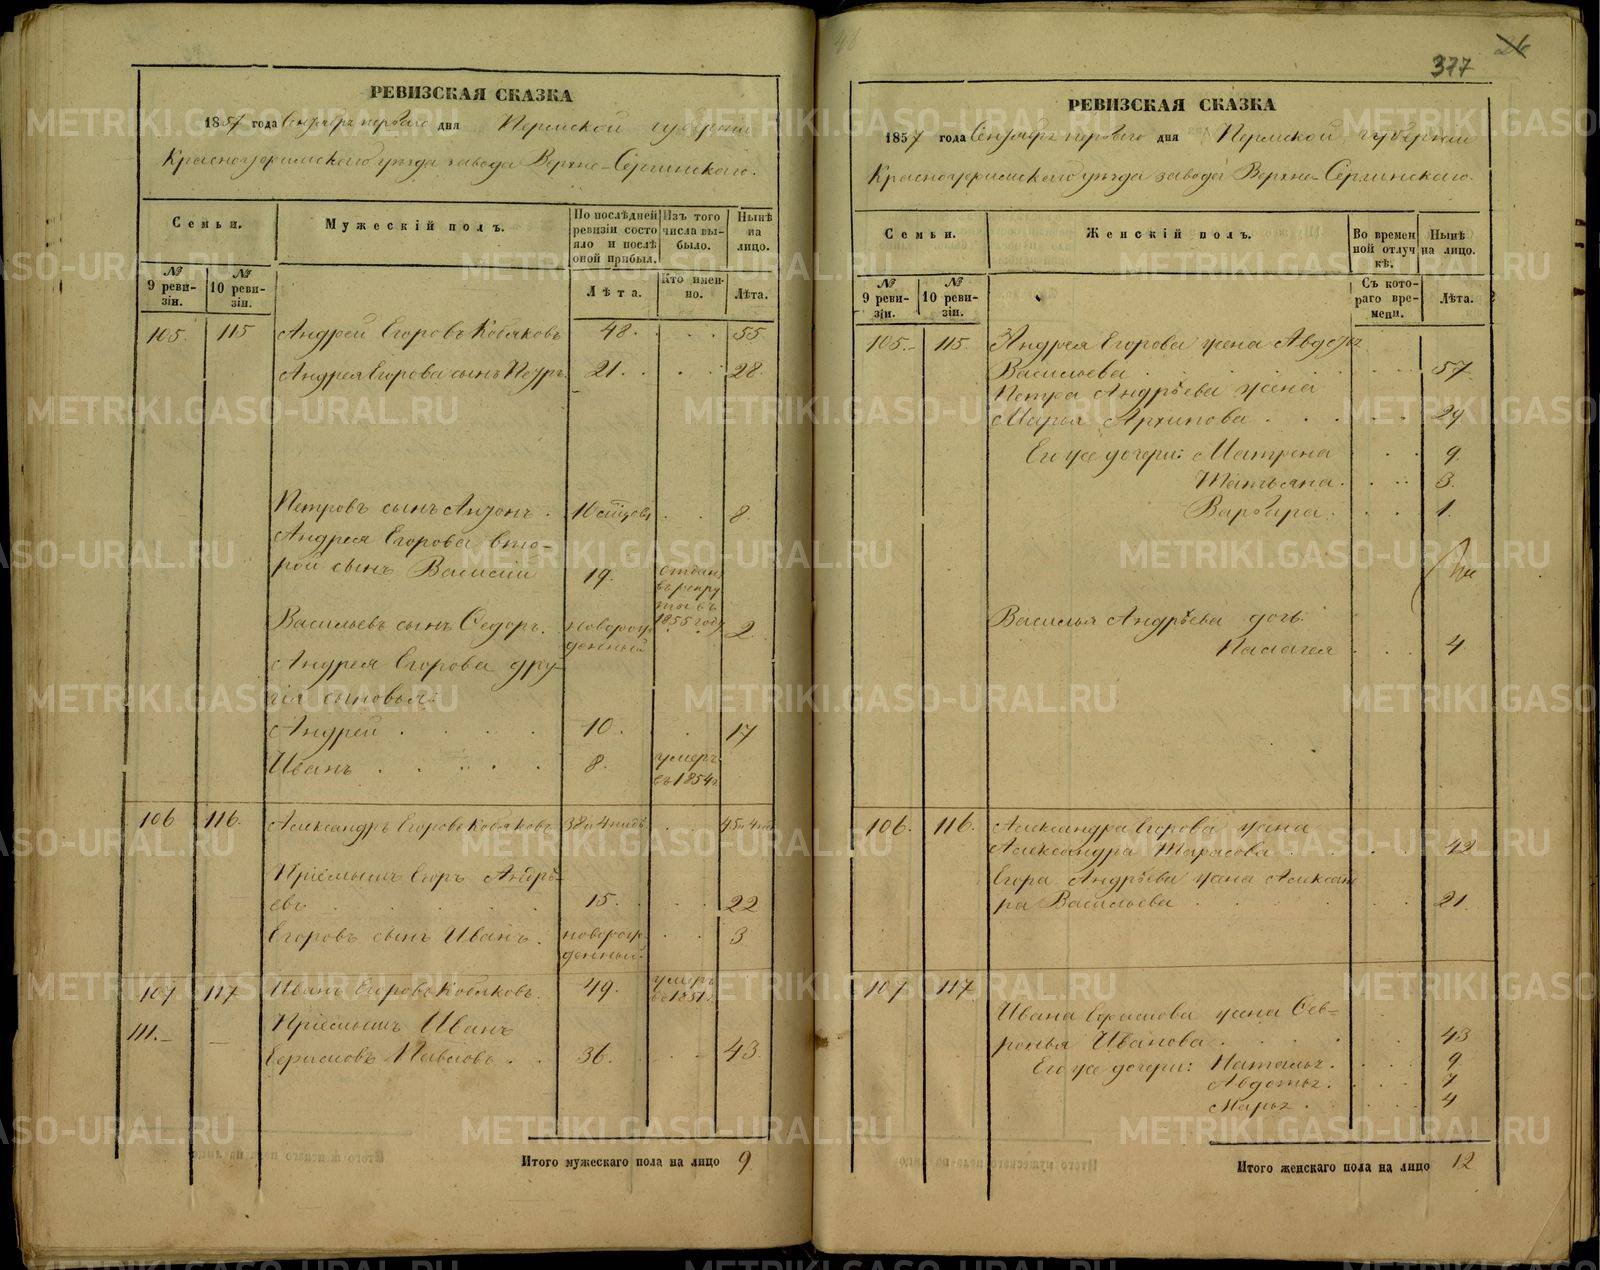 РЕВИЗСКАЯ СКАЗКА
1857 года Сентября перваго дня Пермской губернiи
Красноуфимскаго уѣзда завода Верхне-Сергинскаго.
Семьи.
Мужескiй полъ.
По послѣдней ревизiи состояло и послѣ оной прибыл.
Изъ того числа выбыло.
Нынѣ на лицо.
№ 9 ревизiи.
№ 10 ревизiи.
Лѣта.
Кто именно.
Лѣта.
105. 115 Андрей Егоровъ Кобяковъ 48. 55
Андрея Егорова сынъ Петръ. 21. 28.
Петровъ сынъ Антонъ. 8.
Андрея Егорова вто-
рой сынъ Василiй 19. отданъ
въ рекру
ты въ
1855 году
Васильевъ сынъ Федоръ. новорож
денный 2
Андрея Егорова дру-
гiя сыновья:
Андрей 10. 17
Иванъ 8. умеръ
въ 1854 г.
106 116. Александръ Егоровъ Кобяковъ 38
Прiемышъ Егоръ Андрѣ-
евъ 15. 22
Егоровъ сынъ Иванъ. новорож
денный. 3
107 117 Иванъ Егоровъ Кобяковъ. 49. умеръ
въ 1851 г.
111. Прiемышъ Иванъ
36. 43.
Итого мужескаго пола на лицо 9
377
26
РЕВИЗСКАЯ СКАЗКА
1857 года Сентября перваго дня Пермской губернiи
Красноуфимскаго уѣзда завода Верхне-Сергинскаго.
Семьи.
Женскiй полъ.
Во времен ной отлучкѣ.
Нынѣ на лицо.
№ 9 ревизiи.
№ 10 ревизiи.
Съ котораго времени.
Лѣта.
105. 115. Андрея Егорова жена Авдотья
Васильева 57
Петра Андрѣева жена
Марья Архипова 29
Его же дочери: Матрена 9.
Татьяна. 3.
Варвара. 1.
Василья Андрѣева дочь
Палагея 4
106. 116. Александра Егорова жена
Александра Тарасова 42
Егора Андрѣева жена Александ
ра Васильева 21.
107 117
Ивана жена Фев-
ронья Иванова 43
Его же дочери: Наталья. 9.
Авдотья. 7
Марья. 4
Итого женскаго пола на лицо 12
METRIKI.GASO-URAL.RU